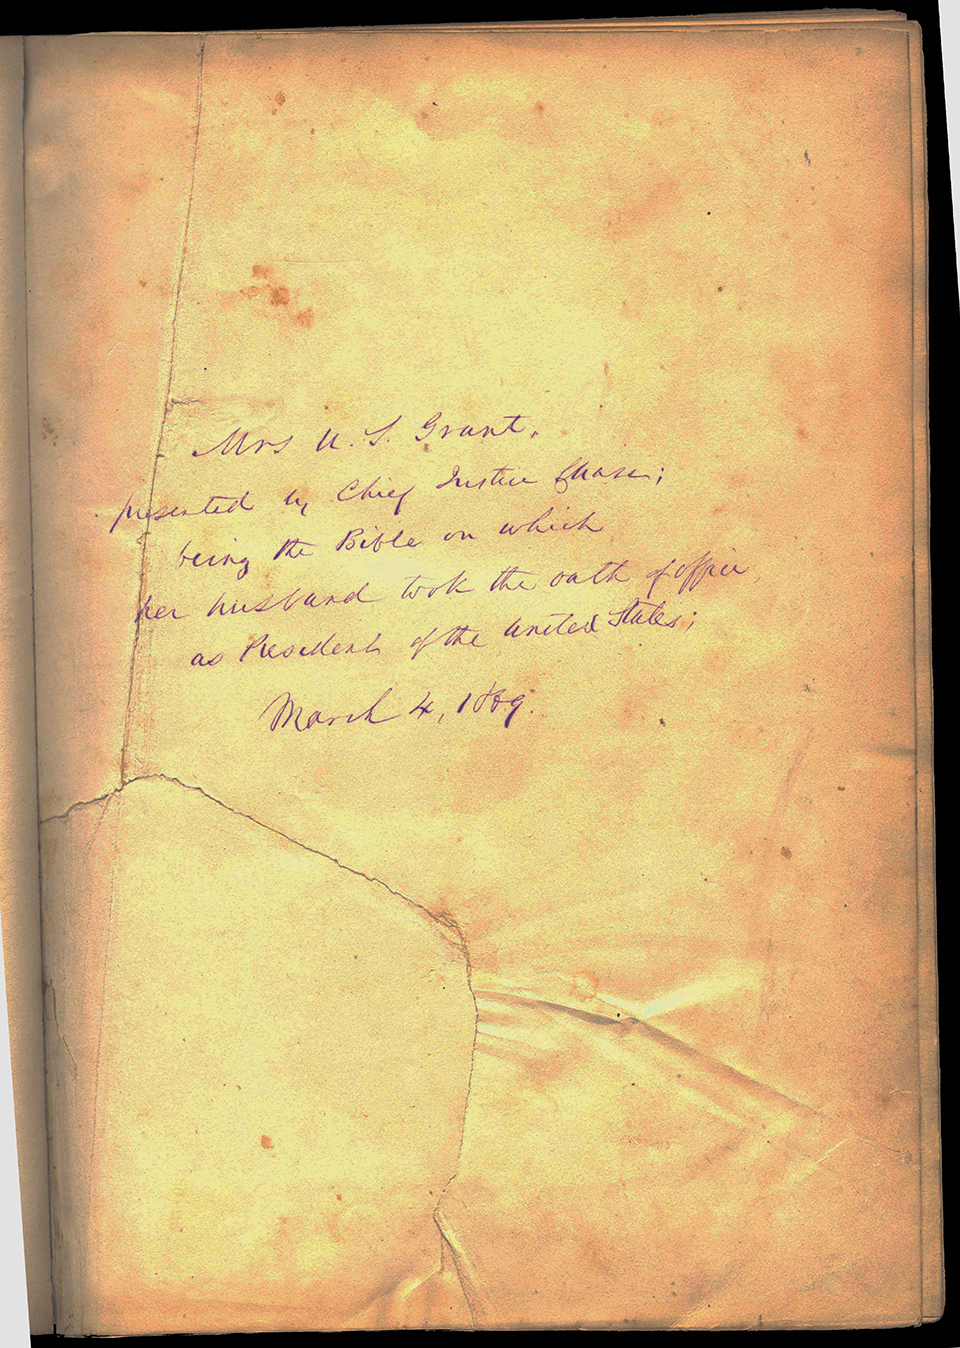 Mrs U. S. Grant,
presented by Chief Justice Chase;
being the Bible on which
her husband took the oath of office
as President of the United States;
March 4, 1869.